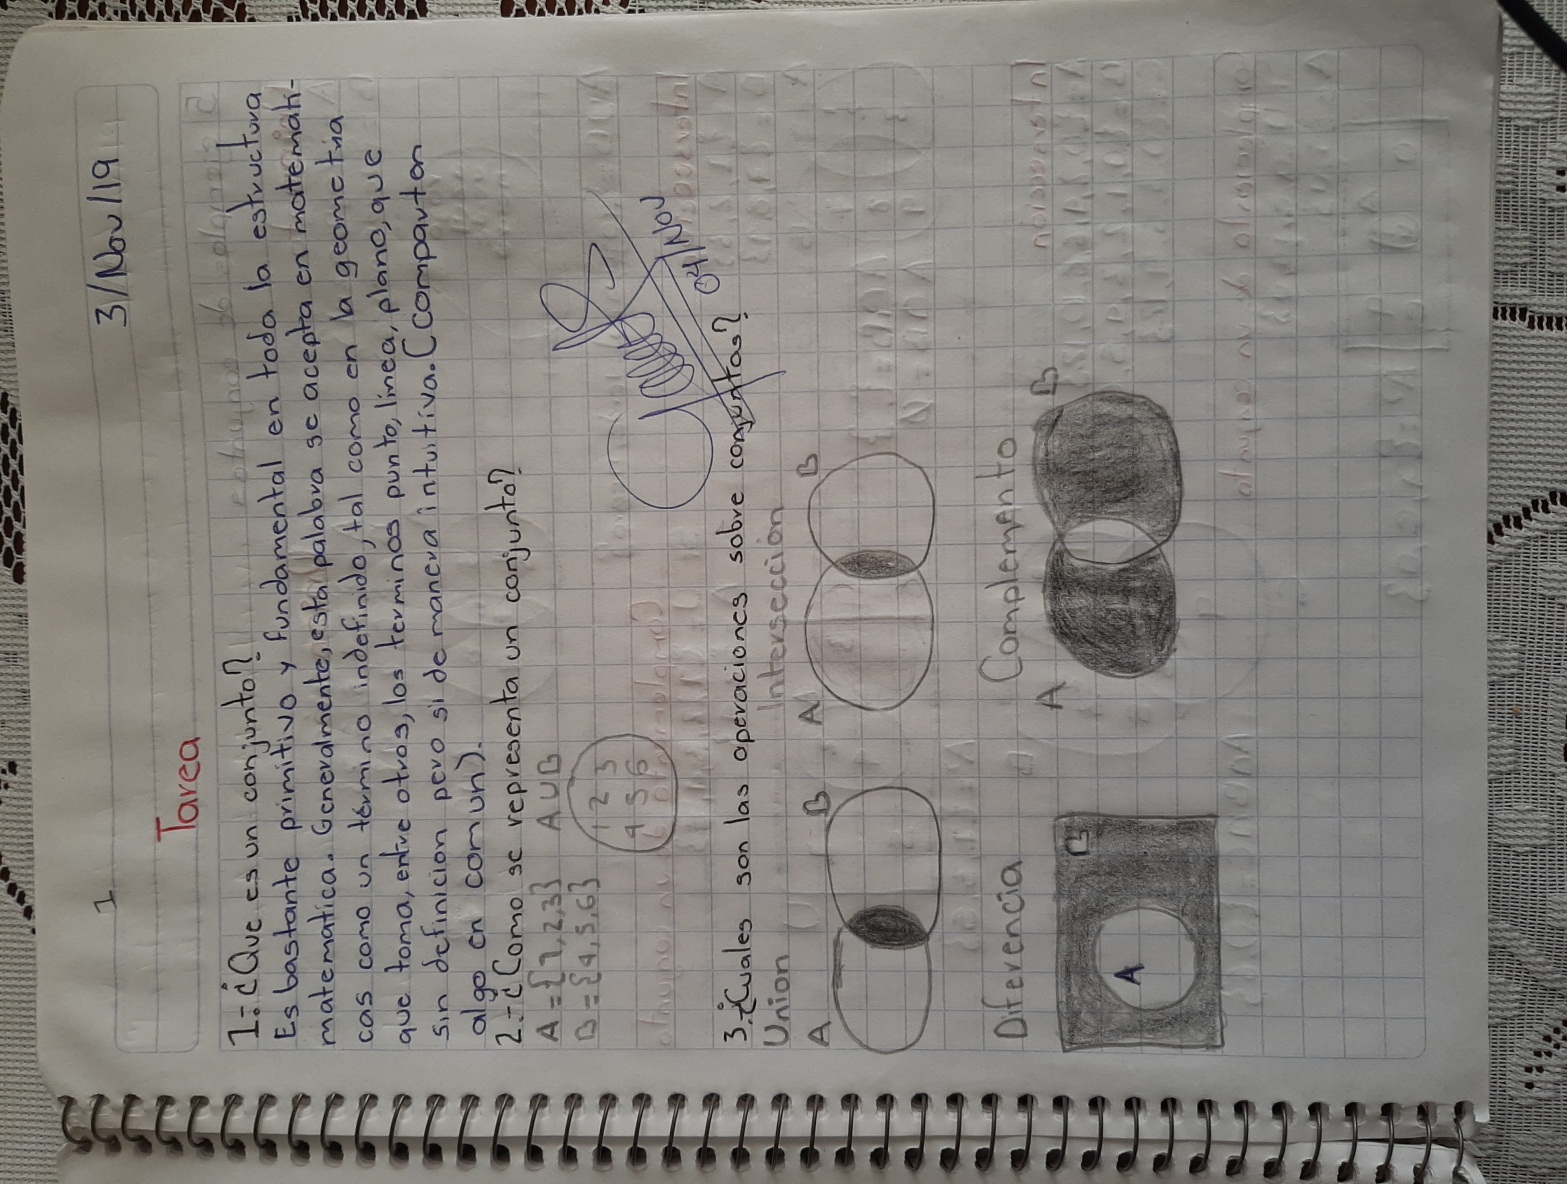 1
3/Nov/19
Tarea
1.-¿Que es un conjunto?
Es bastante primitivo y fundamental en toda la estructura
matemática. Generalmente, esta palabra se acepta en matemáti-
cas como un término indefinido, tal como en la geometria
que toma, entre otros, los terminos punto, linea, plano, que
sin definicion pero si de manera intuitiva. (Comparten
algo en comun).
2.-¿Como se representa un conjunto?
A={1,2,3} A∪B
B={4,5,6}
1 2 3
4 5 6
04/Nov
3.¿Cuales son las operaciones sobre conjuntas?
Union Intersección
A B A B
Diferencia Complemento
A B A B